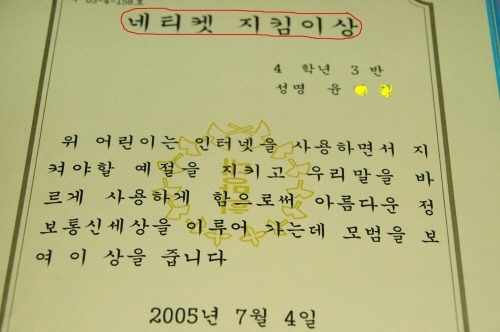 네티켓 지킴이상
4 학년 3 반
성명 윤
위 어린이는 인터넷을 사용하면서 지
켜야할 예절을 지키고 우리말을 바
르게 사용하게 함으로써 아름다운 정
보통신세상을 이루어 가는데 모범을 보
여 이 상을 줍니다
2005년 7월 4일